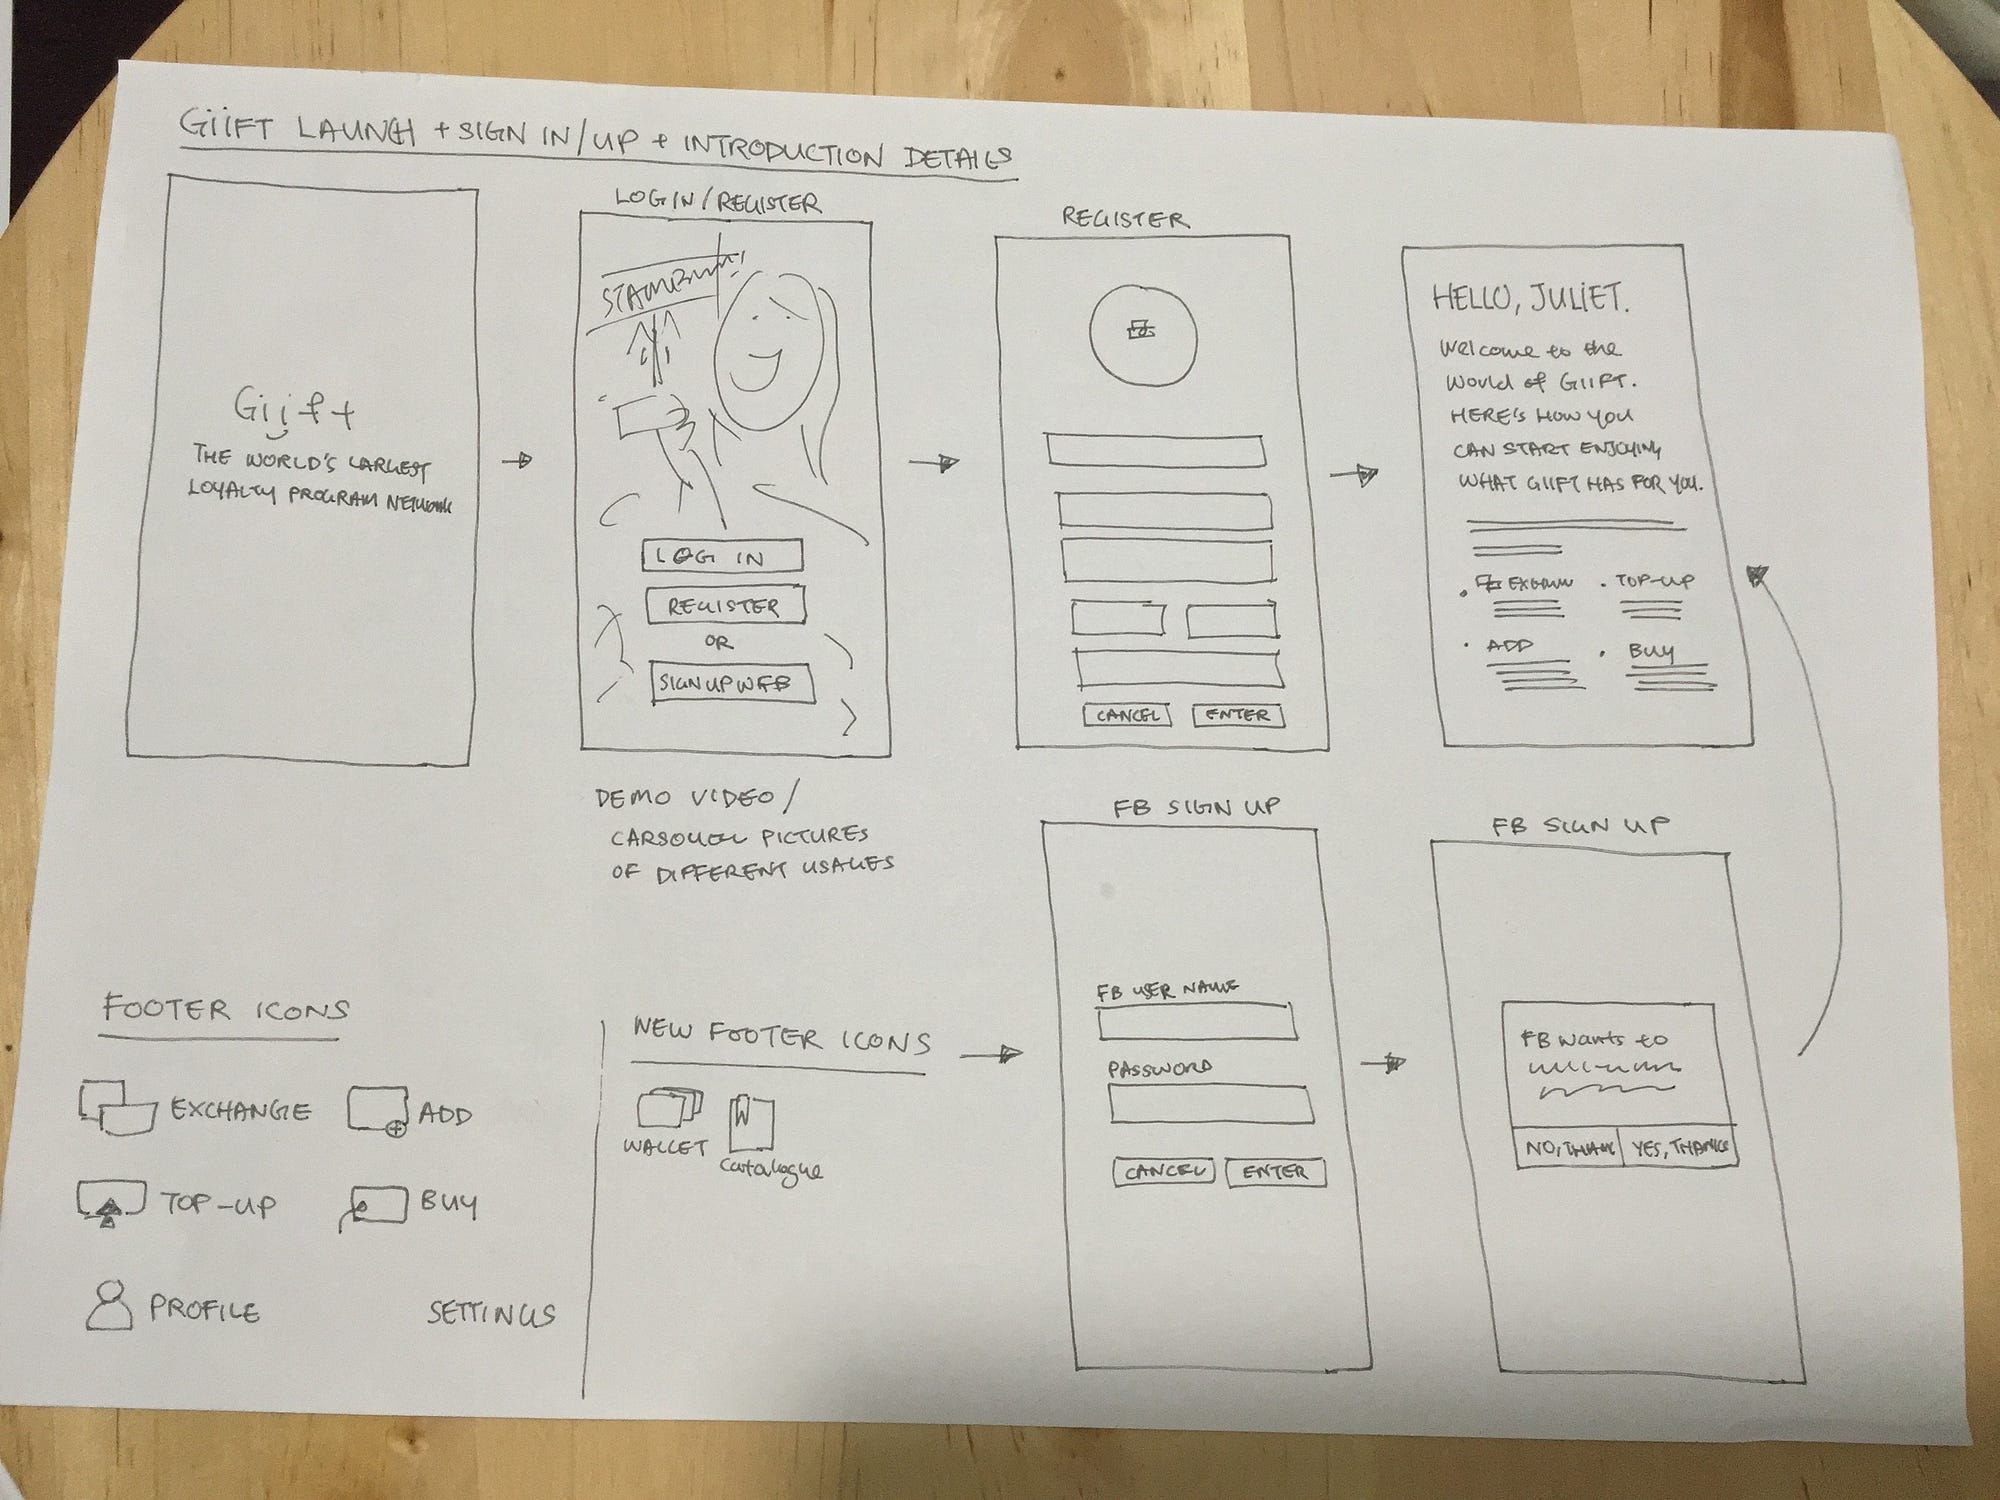 GIIFT LAUNCH + SIGN IN/UP + INTRODUCTION DETAILS
Giift
THE WORLD'S LARGEST
LOYALTY PROGRAM NETWORK
LOGIN/REGISTER
LOG IN
REGISTER
OR
SIGN UP W FB
DEMO VIDEO/
CARSOUEL PICTURES
OF DIFFERENT USAGES
REGISTER
CANCEL ENTER
HELLO, JULIET.
Welcome to the
World of GIIFT.
HERE'S HOW YOU
CAN START ENJOYING
WHAT GIIFT HAS FOR YOU.
• TOP-UP
• ADD • BUY
FB SIGN UP
FB USER NAME
PASSWORD
CANCEL ENTER
FB SIGN UP
FB wants to
NO, THANKS YES, THANKS
FOOTER ICONS
EXCHANGE ADD
TOP-UP BUY
PROFILE SETTINGS
NEW FOOTER ICONS
WALLET
Catalogue